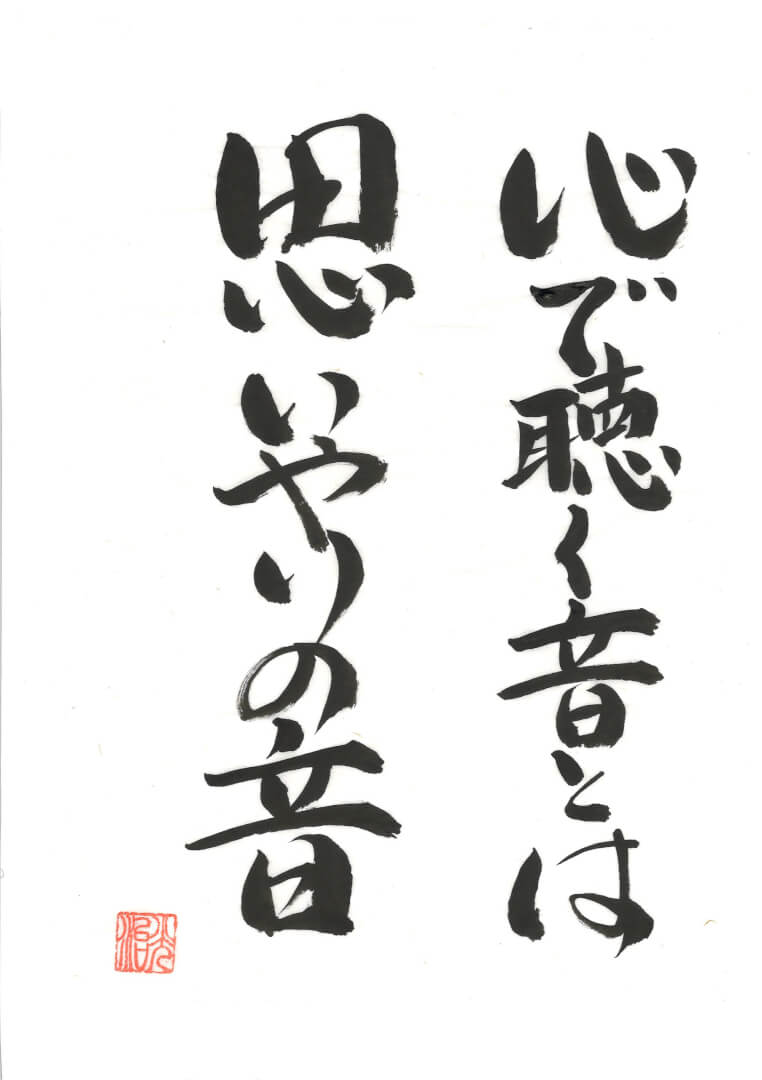 心で聴く音とは
思いやりの音